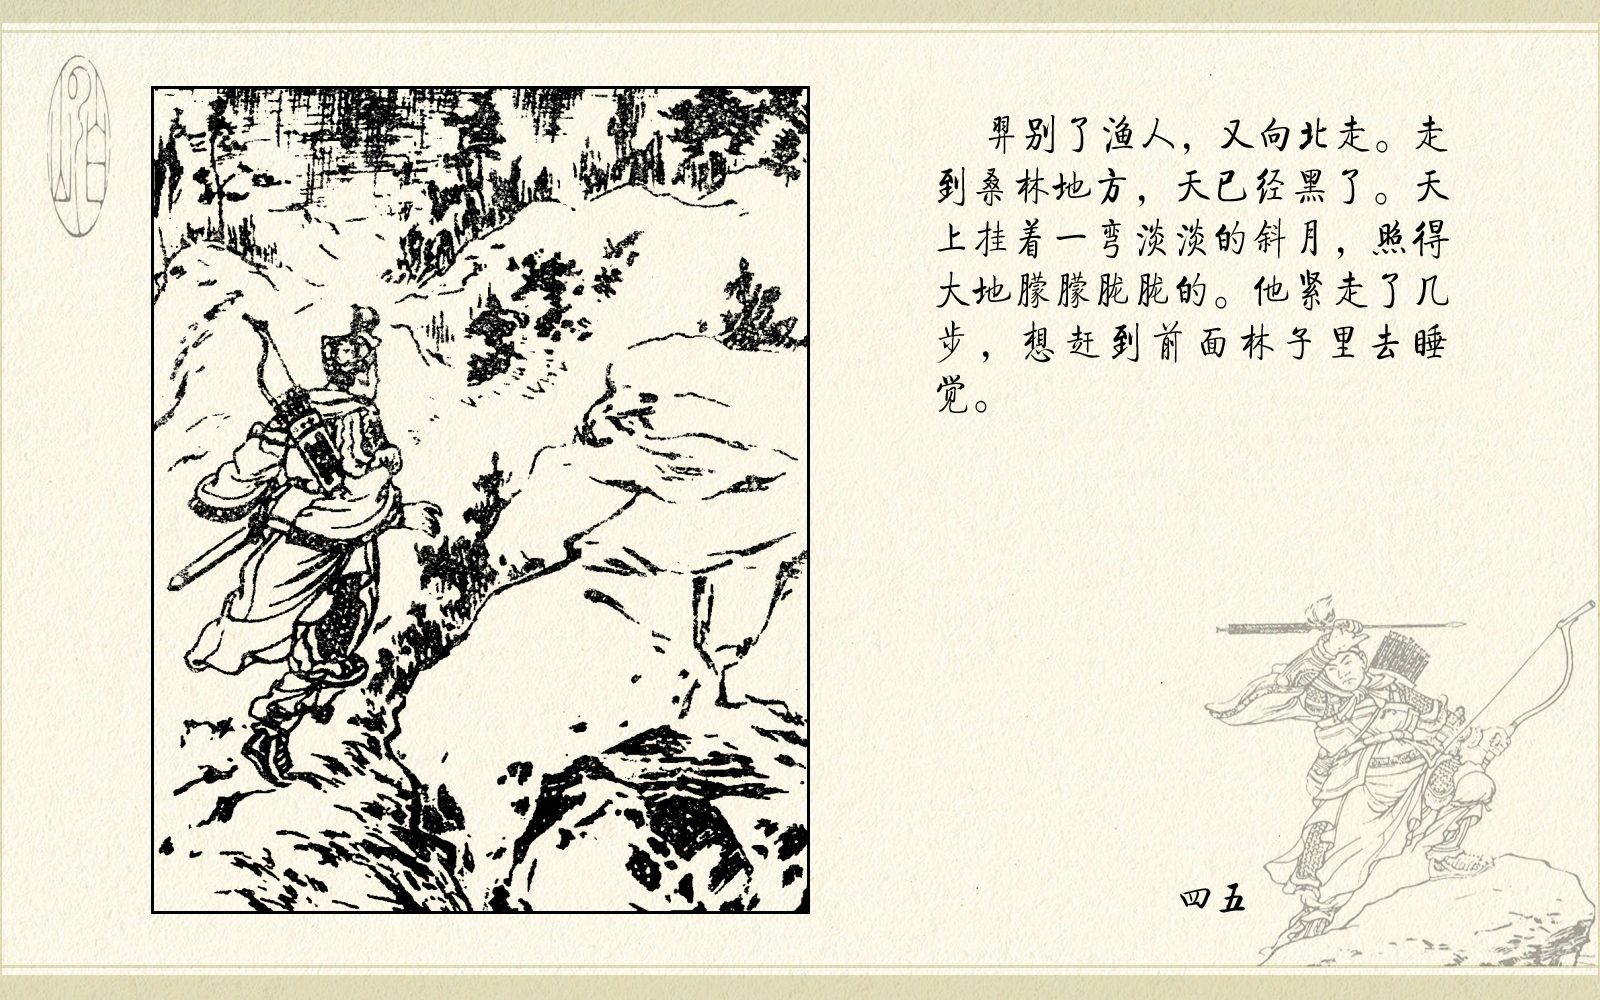 羿别了渔人，又向北走。走
到桑林地方，天已经黑了。天
上挂着一弯淡淡的斜月，照得
大地朦朦胧胧的。他紧走了几
步，想赶到前面林子里去睡
觉。
四五